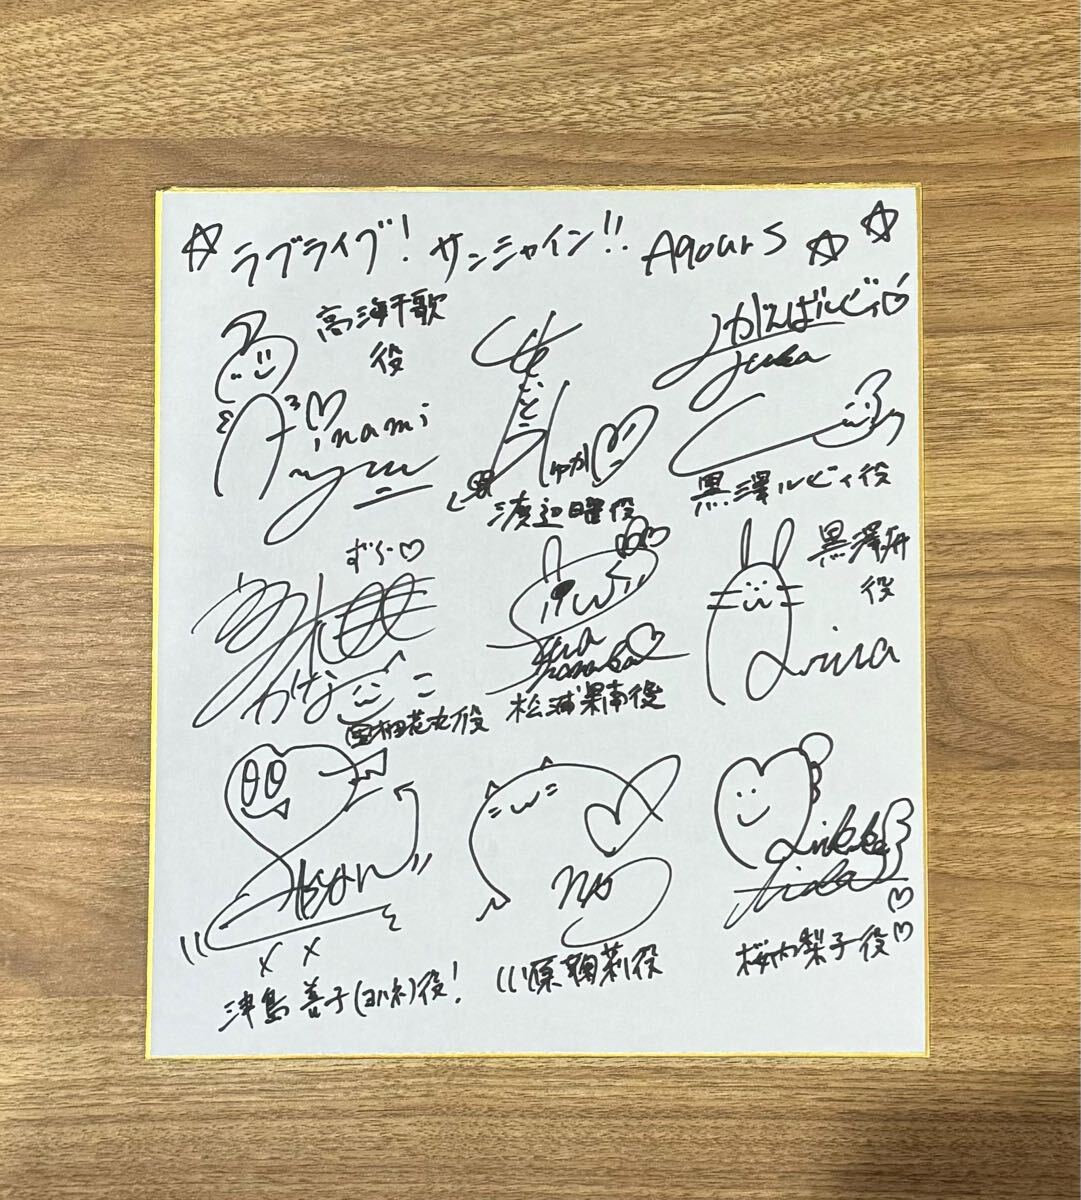 ラブライブ!サンシャイン!! Aqours
高海千歌
役
inami
渡辺曜役
しゅか
がんばルビィ
黒澤ルビィ役
ずら
かなこ
国木田花丸役
松浦果南役
黒澤
役
Arisa
Aikyan
津島善子(ヨハネ)役!
小原鞠莉役
Rikako
Aida
桜内梨子役